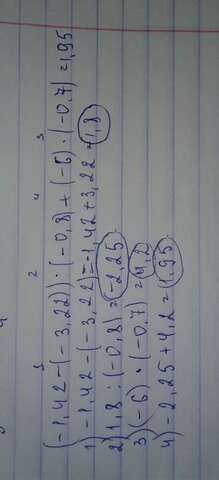 1 2 4 3
(-1,42-(-3,22)):(-0,8)+(-6)·(-0,7)=1,95
1) -1,42-(-3,22)=-1,42+3,22=1,8
2) 1,8:(-0,8)=-2,25
3) (-6)·(-0,7)=4,2
4) -2,25+4,2=1,95